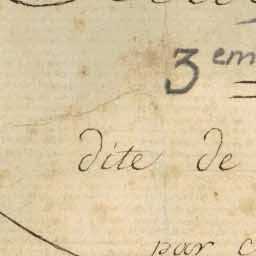 3em
dite de
par